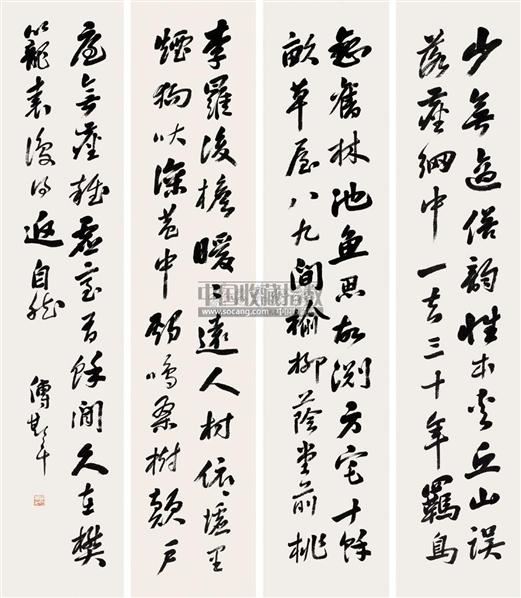 少無適俗韵性本愛丘山誤
落塵網中一去三十年羈鳥
戀舊林池魚思故渊方宅十餘
畝草屋八九間榆柳蔭堂前桃
李羅後檐曖〻遠人村依〻墟里
煙狗吠深巷中鷄鳴桑樹顛戶
庭無塵雜虛室有餘閒久在樊
籠裏復得返自然
傅斯年
中国收藏指数
www.socang.com